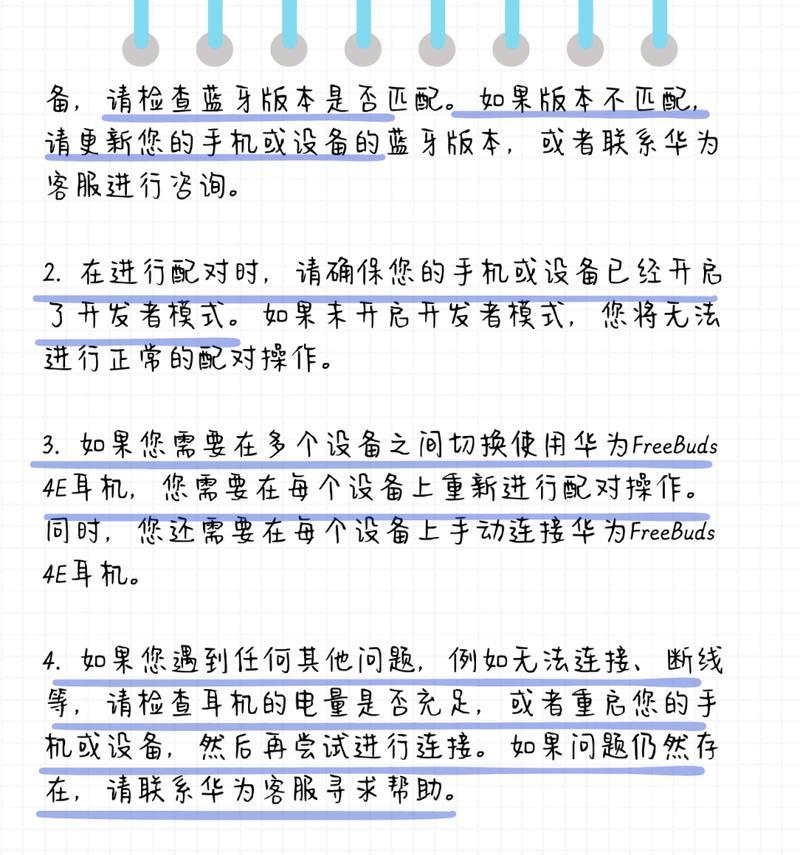 备，请检查蓝牙版本是否匹配。如果版本不匹配，
请更新您的手机或设备的蓝牙版本，或者联系华为
客服进行咨询。
2. 在进行配对时，请确保您的手机或设备已经开启
了开发者模式。如果未开启开发者模式，您将无法
进行正常的配对操作。
3. 如果您需要在多个设备之间切换使用华为FreeBuds
4E耳机，您需要在每个设备上重新进行配对操作。
同时，您还需要在每个设备上手动连接华为FreeBuds
4E耳机。
4. 如果您遇到任何其他问题，例如无法连接、断线
等，请检查耳机的电量是否充足，或者重启您的手
机或设备，然后再尝试进行连接。如果问题仍然存
在，请联系华为客服寻求帮助。